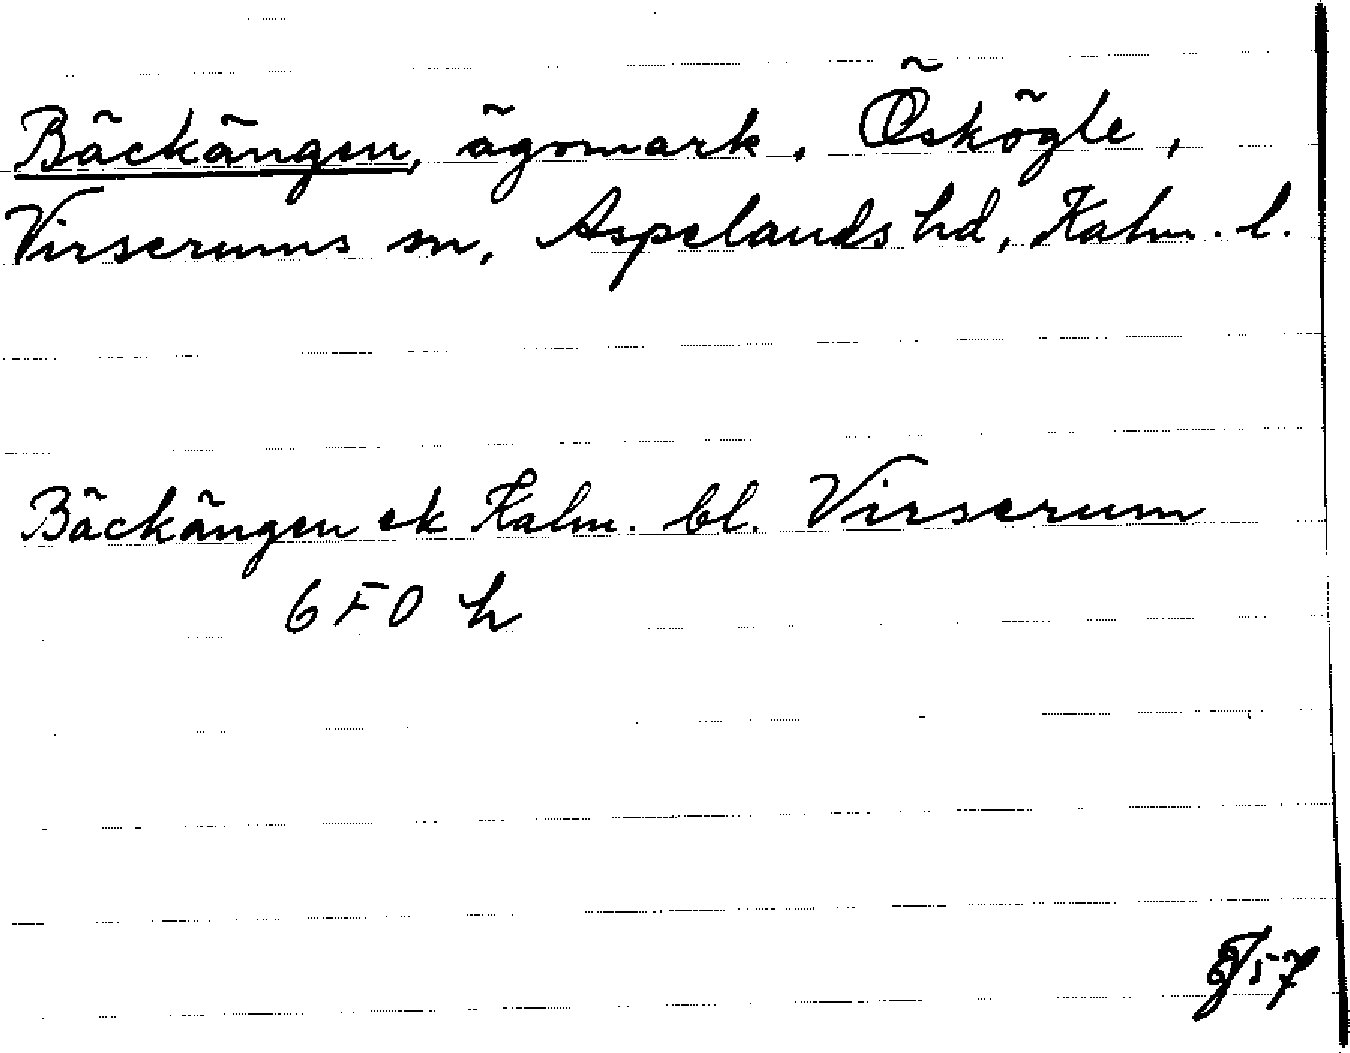 Bäckängen, ägomark. Öskögle,
Virserums sn, Aspelands hd, Kalm. l.
Bäckängen ek Kalm. bl. Virserum
6 F 0 h
57